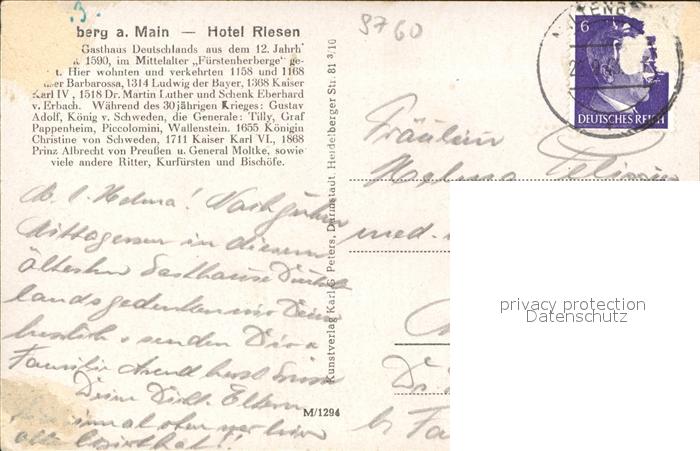 berg a. Main — Hotel Riesen
Gasthaus Deutschlands aus dem 12. Jahrh
1590, im Mittelalter „Fürstenherberge" ge-
t. Hier wohnten und verkehrten 1158 und 1168
Barbarossa, 1314 Ludwig der Bayer, 1368 Kaiser
Karl IV, 1518 Dr. Martin Luther und Schenk Eberhard
v. Erbach. Während des 30jährigen Krieges: Gustav
Adolf, König v. Schweden, die Generale: Tilly, Graf
Pappenheim, Piccolomini, Wallenstein. 1655 Königin
Christine von Schweden, 1711 Kaiser Karl VI., 1868
Prinz Albrecht von Preußen u. General Moltke, sowie
viele andere Ritter, Kurfürsten und Bischöfe.
M. l. Helma! Nach gutem
Mittagessen in diesem
ältesten Gasthause Deutsch
lands gedenken wir Dein
herzlich & senden Dir &
Familie herzl Grüsse
Deine Eltern
M/1294
Kunstverlag Karl G Peters, Darmstadt, Heidelberger Str. 81 3/10
8760
6
DEUTSCHES REICH
Fräulein
Helma
med.
Dr.
b. Fa
privacy protection
Datenschutz